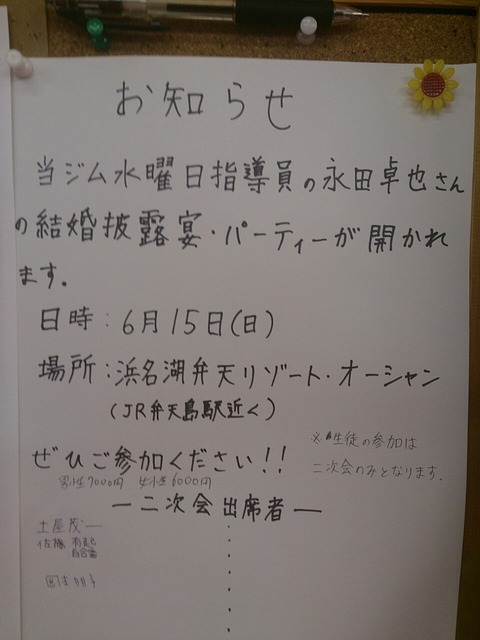 お知らせ
当ジム水曜日指導員の永田卓也さん
の結婚披露宴・パーティーが開かれ
ます。
日時：6月15日(日)
場所：浜名湖弁天リゾート・オーシャン
(JR弁天島駅近く)
※生徒の参加は
二次会のみとなります。
ぜひご参加ください!!
男性7000円 女性6000円
―二次会出席者―
土屋茂一
佐藤